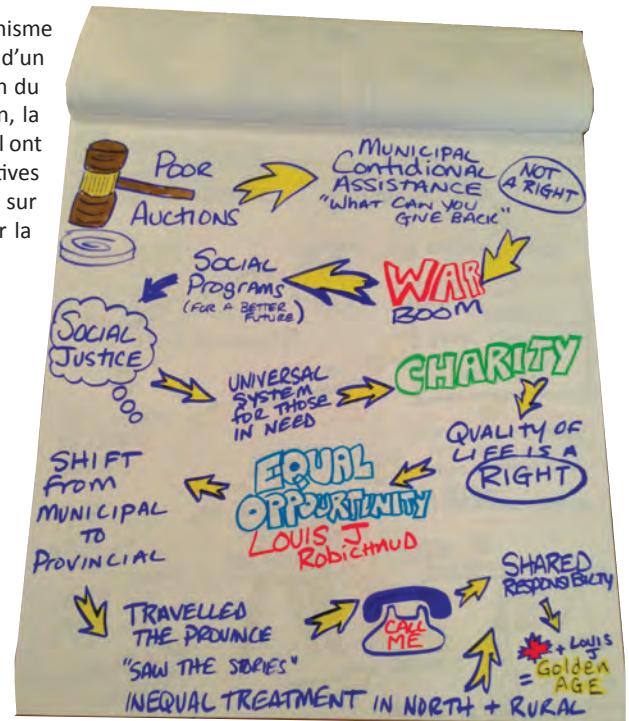 nisme
d'un
n du
n, la
l ont
tives
sur
r la
POOR
AUCTIONS
MUNICIPAL
CONTIDIONAL
ASSISTANCE
"WHAT CAN YOU
GIVE BACK"
NOT
A RIGHT
WAR
BOOM
SOCIAL
PROGRAMS
(FOR A BETTER
FUTURE)
SOCIAL
JUSTICE
UNIVERSAL
SYSTEM
FOR THOSE
IN NEED
CHARITY
QUALITY OF
LIFE IS A
RIGHT
EQUAL
OPPOURTUNITY
LOUIS J
ROBICHAUD
SHIFT
FROM
MUNICIPAL
TO
PROVINCIAL
TRAVELLED
THE PROVINCE
"SAW THE STORIES"
CALL
ME
SHARED
RESPONSIBILTY
+ LOUIS
J
= Golden
AGE
INEQUAL TREATMENT IN NORTH + RURAL